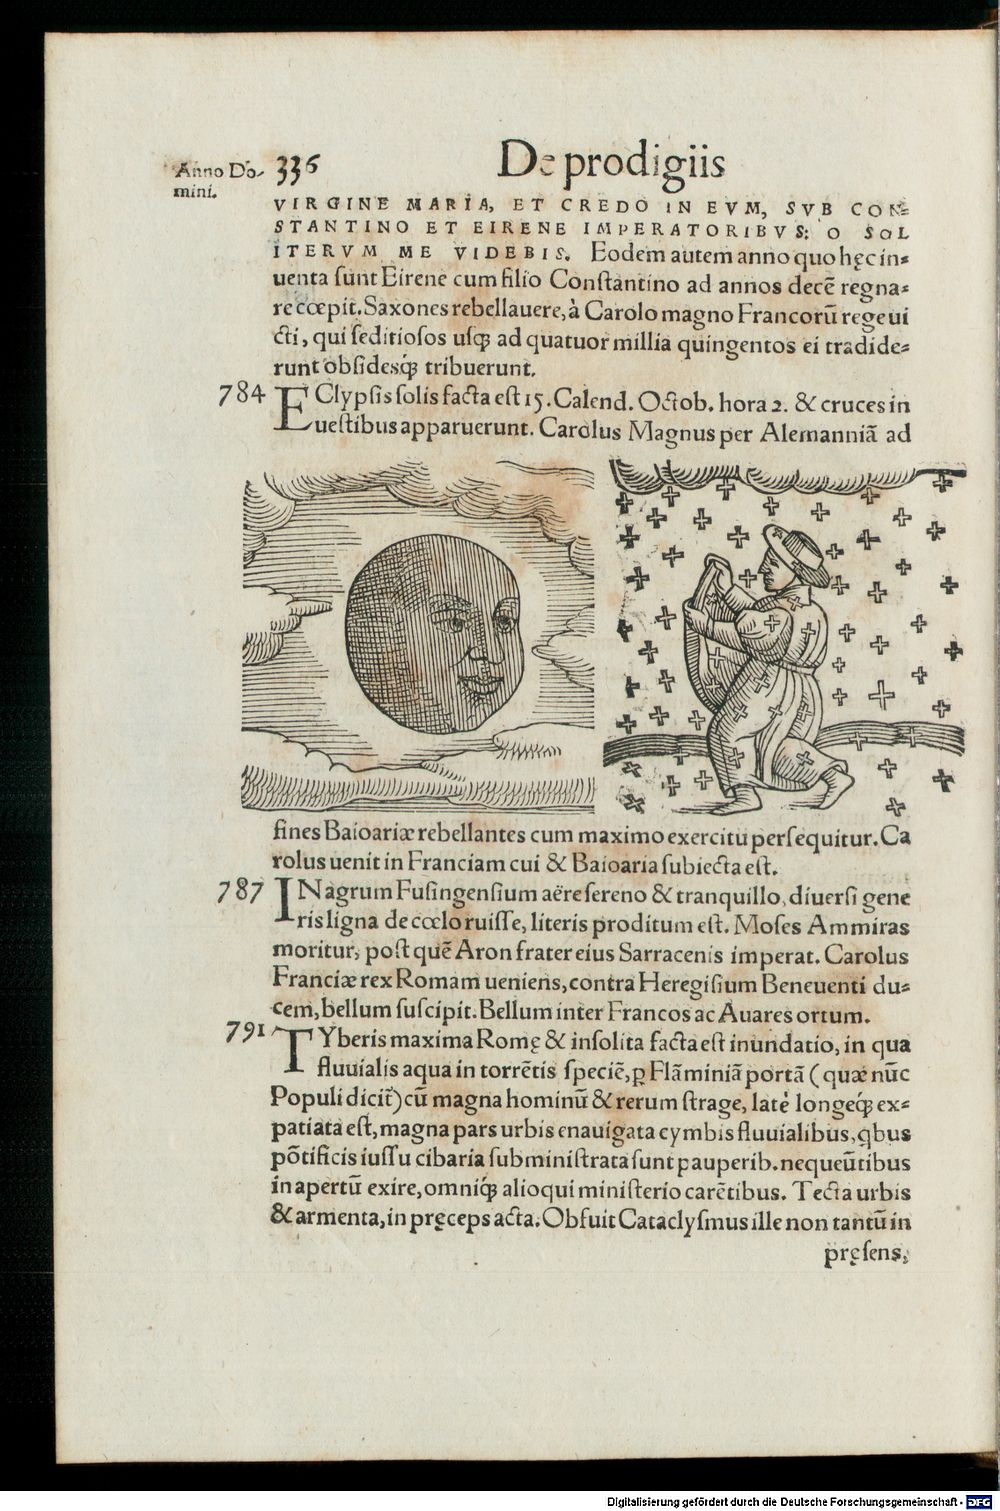 Anno Do-
mini.
336
De prodigiis
VIRGINE MARIA, ET CREDO IN EVM, SVB CON=
STANTINO ET EIRENE IMPERATORIBVS: O SOL
ITERVM ME VIDEBIS. Eodem autem anno quo hęc in=
uenta sunt Eirene cum filio Constantino ad annos decē regna=
re cœpit. Saxones rebellauere, à Carolo magno Francorū rege ui
cti, qui seditiosos usq; ad quatuor millia quingentos ei tradide=
runt obsidesq́; tribuerunt.
784 EClypsis solis facta est 15. Calend. Octob. hora 2. & cruces in
uestibus apparuerunt. Carolus Magnus per Alemanniā ad
fines Baioariæ rebellantes cum maximo exercitu persequitur. Ca
rolus uenit in Franciam cui & Baioaria subiecta est.
787 INagrum Fusingensium aëre sereno & tranquillo, diuersi gene
ris ligna de cœlo ruisse, literis proditum est. Moses Ammiras
moritur, post quē Aron frater eius Sarracenis imperat. Carolus
Franciæ rex Romam ueniens, contra Heregisium Beneuenti du=
cem, bellum suscipit. Bellum inter Francos ac Auares ortum.
791 TYberis maxima Romę & insolita facta est inundatio, in qua
fluuialis aqua in torrētis speciē, ꝑ Flāminiā portā (quæ nūc
Populi dicit̃) cū magna hominū & rerum strage, latè longeq́; ex=
patiata est, magna pars urbis enauigata cymbis fluuialibus, qbus
pōtificis iussu cibaria subministrata sunt pauperib. nequeūtibus
in apertū exire, omniq́; alioqui ministerio carētibus. Tecta urbis
& armenta, in pręceps acta. Obfuit Cataclysmus ille non tantū in
pręsens,
Digitalisierung gefördert durch die Deutsche Forschungsgemeinschaft - DFG